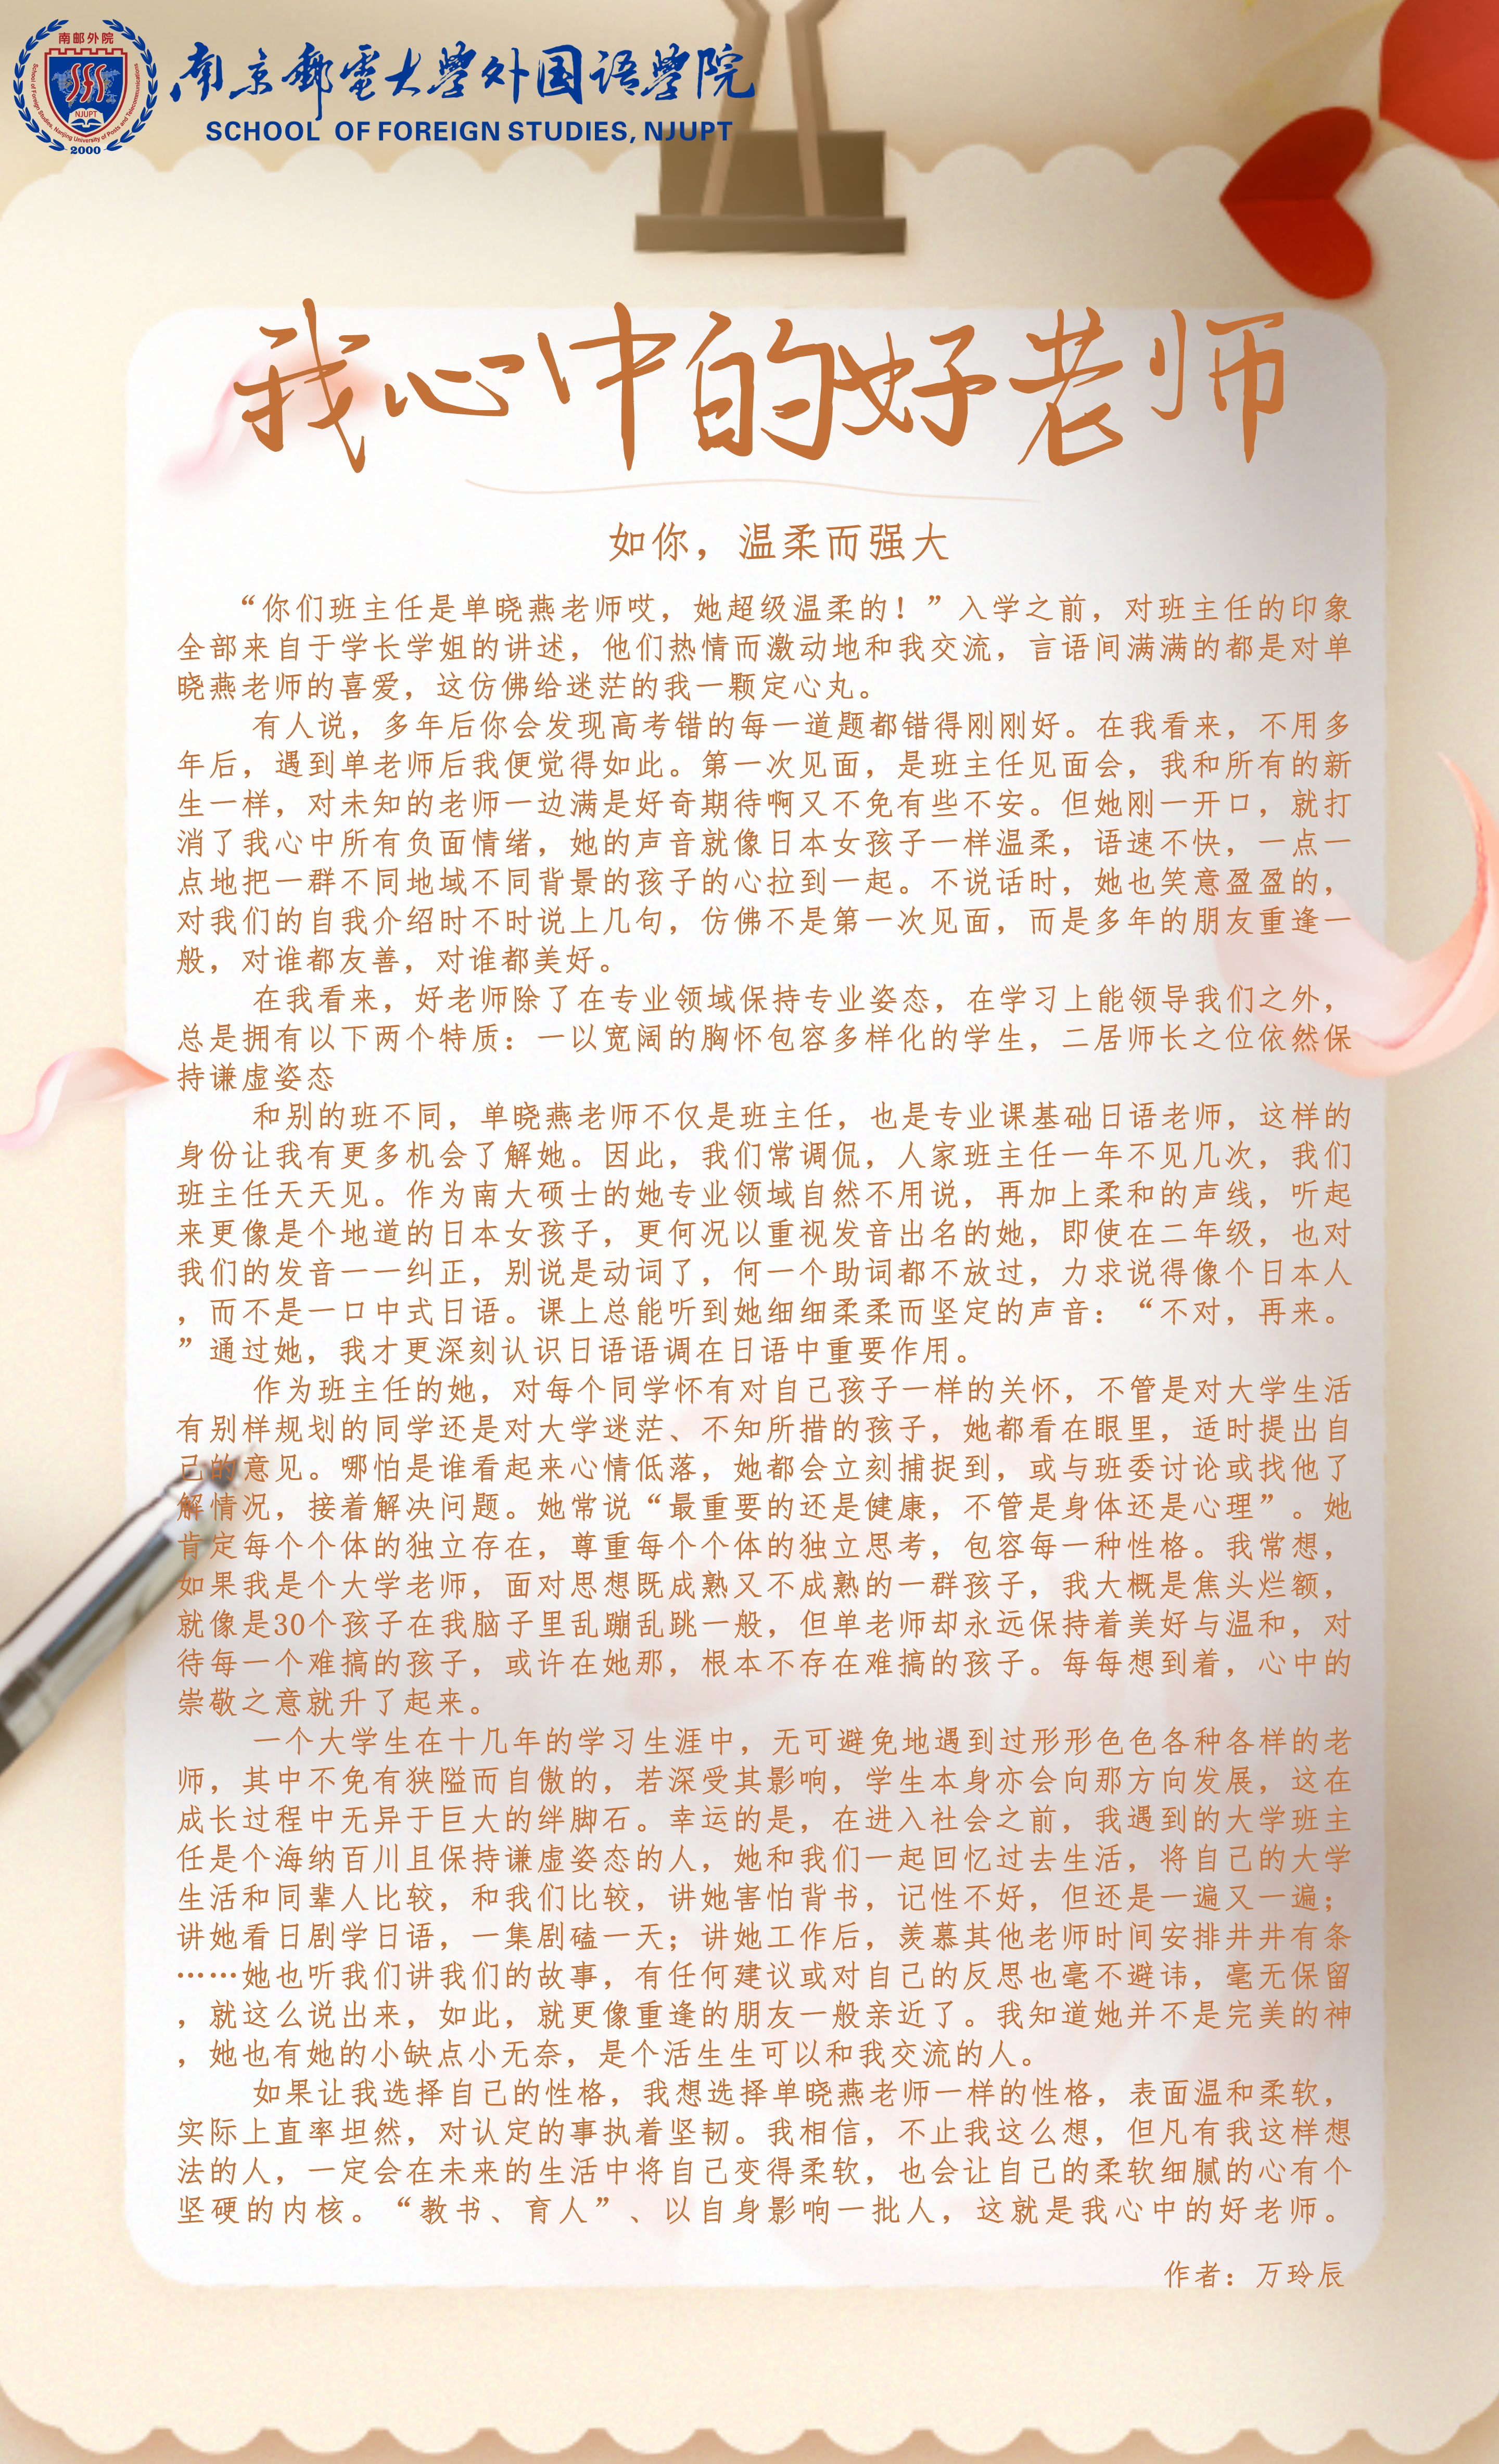 南邮外院
School of Foreign Studies, Nanjing University of Posts and Telecommunications
NJUPT
2000
南京郵電大學外国语學院
SCHOOL OF FOREIGN STUDIES, NJUPT
我心中的好老师
如你，温柔而强大
“你们班主任是单晓燕老师哎，她超级温柔的！”入学之前，对班主任的印象
全部来自于学长学姐的讲述，他们热情而激动地和我交流，言语间满满的都是对单
晓燕老师的喜爱，这仿佛给迷茫的我一颗定心丸。
有人说，多年后你会发现高考错的每一道题都错得刚刚好。在我看来，不用多
年后，遇到单老师后我便觉得如此。第一次见面，是班主任见面会，我和所有的新
生一样，对未知的老师一边满是好奇期待啊又不免有些不安。但她刚一开口，就打
消了我心中所有负面情绪，她的声音就像日本女孩子一样温柔，语速不快，一点一
点地把一群不同地域不同背景的孩子的心拉到一起。不说话时，她也笑意盈盈的，
对我们的自我介绍时不时说上几句，仿佛不是第一次见面，而是多年的朋友重逢一
般，对谁都友善，对谁都美好。
在我看来，好老师除了在专业领域保持专业姿态，在学习上能领导我们之外，
总是拥有以下两个特质：一以宽阔的胸怀包容多样化的学生，二居师长之位依然保
持谦虚姿态
和别的班不同，单晓燕老师不仅是班主任，也是专业课基础日语老师，这样的
身份让我有更多机会了解她。因此，我们常调侃，人家班主任一年不见几次，我们
班主任天天见。作为南大硕士的她专业领域自然不用说，再加上柔和的声线，听起
来更像是个地道的日本女孩子，更何况以重视发音出名的她，即使在二年级，也对
我们的发音一一纠正，别说是动词了，何一个助词都不放过，力求说得像个日本人
，而不是一口中式日语。课上总能听到她细细柔柔而坚定的声音：“不对，再来。
”通过她，我才更深刻认识日语语调在日语中重要作用。
作为班主任的她，对每个同学怀有对自己孩子一样的关怀，不管是对大学生活
有别样规划的同学还是对大学迷茫、不知所措的孩子，她都看在眼里，适时提出自
己的意见。哪怕是谁看起来心情低落，她都会立刻捕捉到，或与班委讨论或找他了
解情况，接着解决问题。她常说“最重要的还是健康，不管是身体还是心理”。她
肯定每个个体的独立存在，尊重每个个体的独立思考，包容每一种性格。我常想，
如果我是个大学老师，面对思想既成熟又不成熟的一群孩子，我大概是焦头烂额，
就像是30个孩子在我脑子里乱蹦乱跳一般，但单老师却永远保持着美好与温和，对
待每一个难搞的孩子，或许在她那，根本不存在难搞的孩子。每每想到着，心中的
崇敬之意就升了起来。
一个大学生在十几年的学习生涯中，无可避免地遇到过形形色色各种各样的老
师，其中不免有狭隘而自傲的，若深受其影响，学生本身亦会向那方向发展，这在
成长过程中无异于巨大的绊脚石。幸运的是，在进入社会之前，我遇到的大学班主
任是个海纳百川且保持谦虚姿态的人，她和我们一起回忆过去生活，将自己的大学
生活和同辈人比较，和我们比较，讲她害怕背书，记性不好，但还是一遍又一遍；
讲她看日剧学日语，一集剧磕一天；讲她工作后，羡慕其他老师时间安排井井有条
……她也听我们讲我们的故事，有任何建议或对自己的反思也毫不避讳，毫无保留
，就这么说出来，如此，就更像重逢的朋友一般亲近了。我知道她并不是完美的神
，她也有她的小缺点小无奈，是个活生生可以和我交流的人。
如果让我选择自己的性格，我想选择单晓燕老师一样的性格，表面温和柔软，
实际上直率坦然，对认定的事执着坚韧。我相信，不止我这么想，但凡有我这样想
法的人，一定会在未来的生活中将自己变得柔软，也会让自己的柔软细腻的心有个
坚硬的内核。“教书、育人”、以自身影响一批人，这就是我心中的好老师。
作者：万玲辰